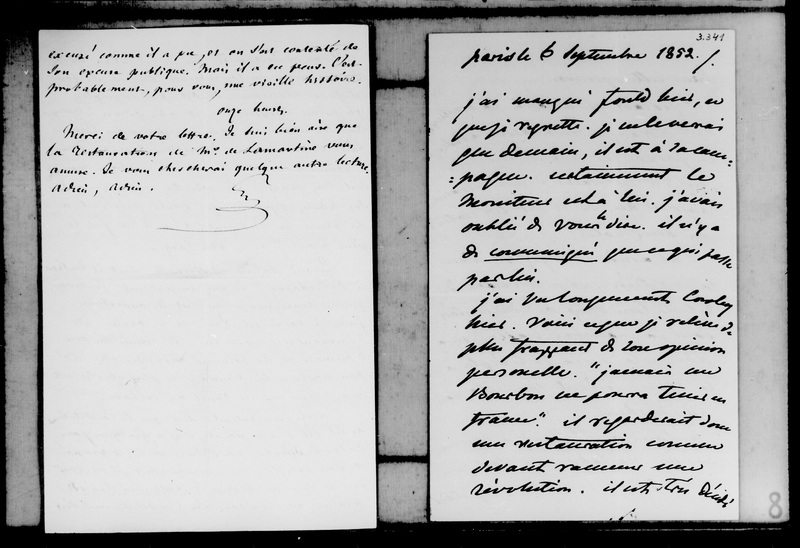 excusé comme il a pu, et on s'est contenté de
son excuse publique. Mais il a eu peur. C'est
probablement, pour vous, une vieille histoire.
onze heures
Merci de votre lettre. Je suis bien aise que
la restauration de Mr. de Lamartine vous
amuse. Je vous chercherai quelque autre lecture.
adieu, adieu.
3.341
paris le 6 septembre 1852.
j'ai manqué fould hier, ce
que je regrette. je ne le verrai
que demain, il est à la cam-
pagne. certainement le
Moniteur est à lui. j'avais
oublié de vous le dire. il n'y a
de communiqué que ce qui passe
par lui.
j'ai vu longuement Cowley
hier. voici ce que je relève de
plus frappant de son opinion
personelle. "jamais un
Bourbon ne pourra tenir en
france". il regarderait donc
une restauration comme
devant ramener une
révolution. il est très décidé
8